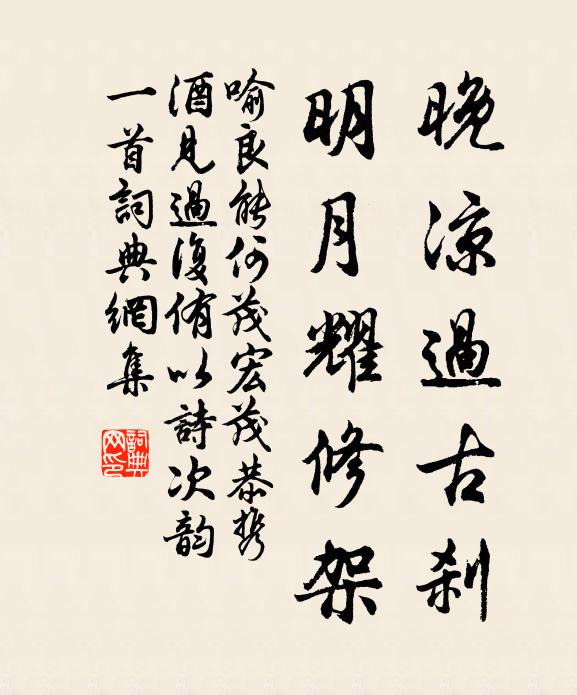 晚凉過古刹
明月耀修架
喻良能何茂宏茂恭携
酒見過復侑以詩次韵
一首詞典網集
詞典
网印